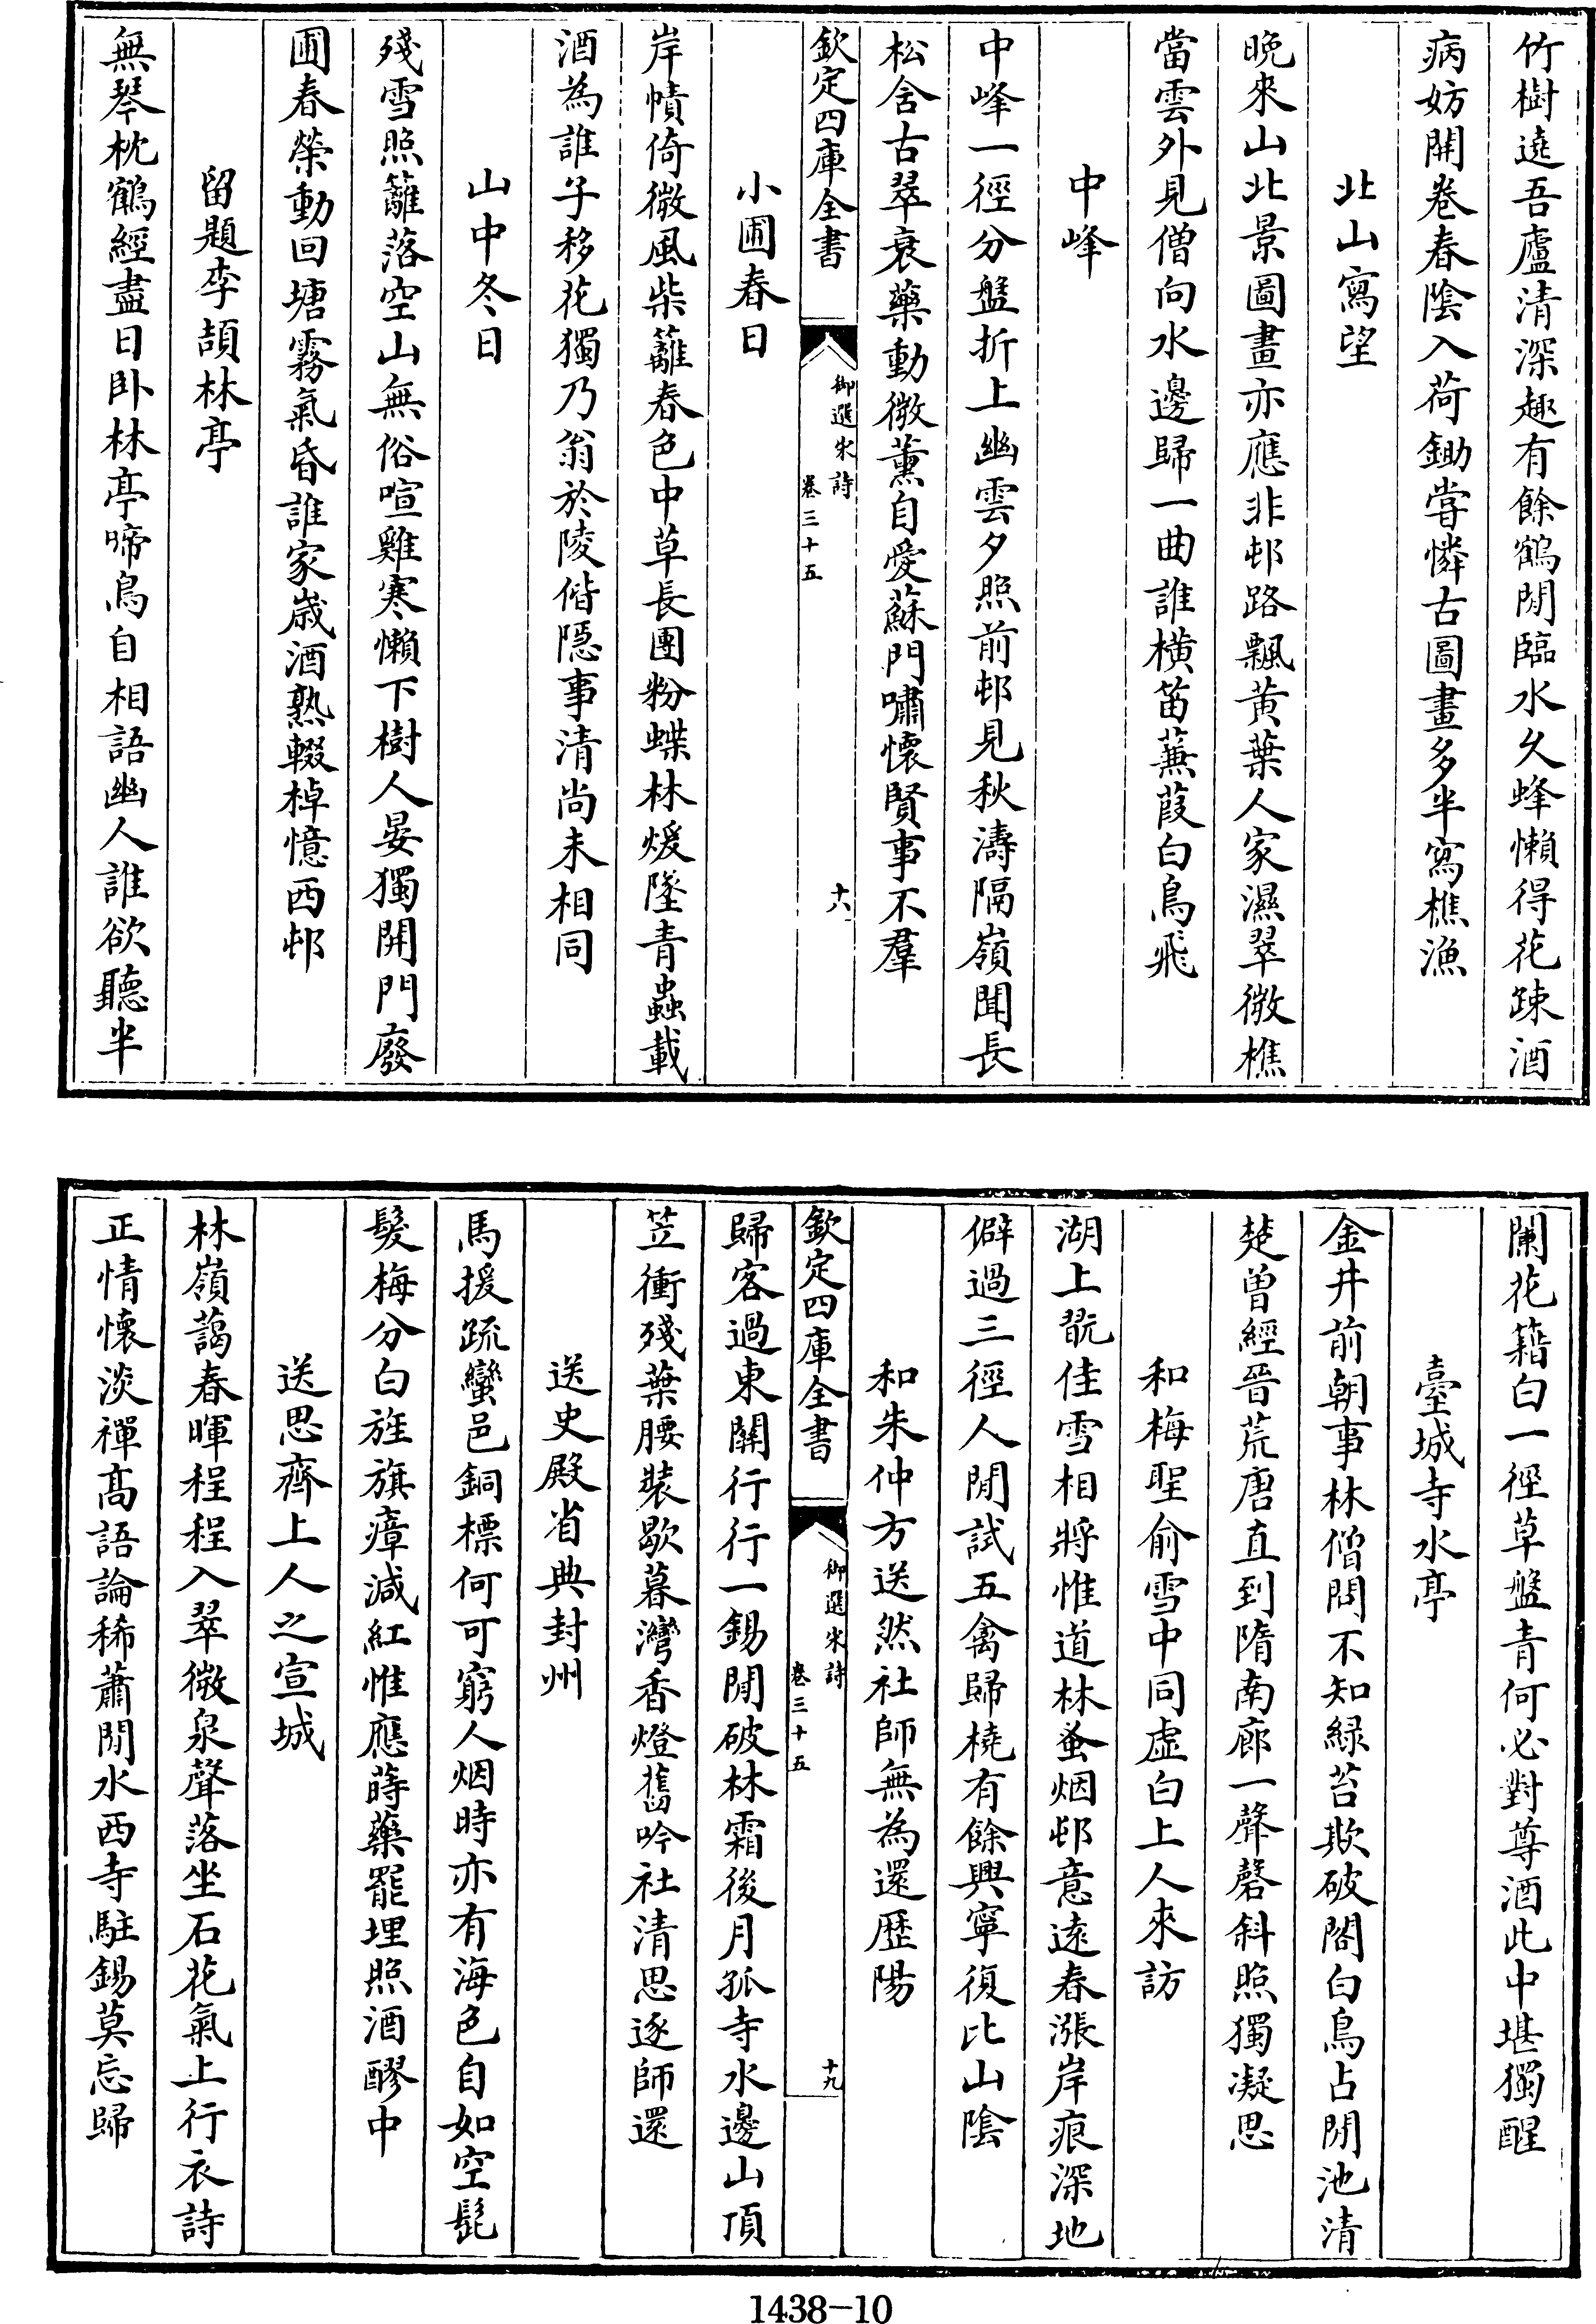 竹樹遶吾廬清深趣有餘鶴閒臨水久蜂懶得花踈酒
病妨開卷春陰入荷鋤嘗憐古圖畫多半寫樵漁
北山寫望
晚來山北景圖畫亦應非邨路飄黃葉人家濕翠微樵
當雲外見僧向水邊歸一曲誰橫笛蒹葭白鳥飛
中峰
中峰一徑分盤折上幽雲夕照前邨見秋濤隔嶺聞長
松含古翠衰藥動微薰自愛蘇門嘯懷賢事不羣
欽定四庫全書
御選宋詩
卷三十五
十八
小圃春日
岸幘倚微風柴籬春色中草長團粉蝶林煖墜青蟲載
酒為誰子移花獨乃翁於陵偕隱事清尚未相同
山中冬日
殘雪照籬落空山無俗喧雞寒懶下樹人晏獨開門廢
圃春榮動回塘霧氣昏誰家歲酒熟輟棹憶西邨
留題李頡林亭
無琴枕鶴經盡日卧林亭啼鳥自相語幽人誰欲聽半
闌花籍白一徑草盤青何必對尊酒此中堪獨醒
臺城寺水亭
金井前朝事林僧問不知緑苔欺破閣白鳥占閒池清
楚曾經晉荒唐直到隋南廊一聲磬斜照獨凝思
和梅聖俞雪中同虛白上人來訪
湖上翫佳雪相將惟道林蚤烟邨意遠春漲岸痕深地
僻過三徑人閒試五禽歸橈有餘興寧復比山陰
和朱仲方送然社師無為還歷陽
欽定四庫全書
御選宋詩
卷三十五
十九
歸客過東關行行一錫閒破林霜後月孤寺水邊山頂
笠衝殘葉腰裝歇暮灣香燈舊吟社清思逐師還
送史殿省典封州
馬援疏蠻邑銅標何可窮人烟時亦有海色自如空髭
髮梅分白旌旗瘴減紅惟應蒔藥罷埋照酒醪中
送思齊上人之宣城
林嶺藹春暉程程入翠微泉聲落坐石花氣上行衣詩
正情懷淡禪高語論稀蕭閒水西寺駐錫莫忘歸
1438-10